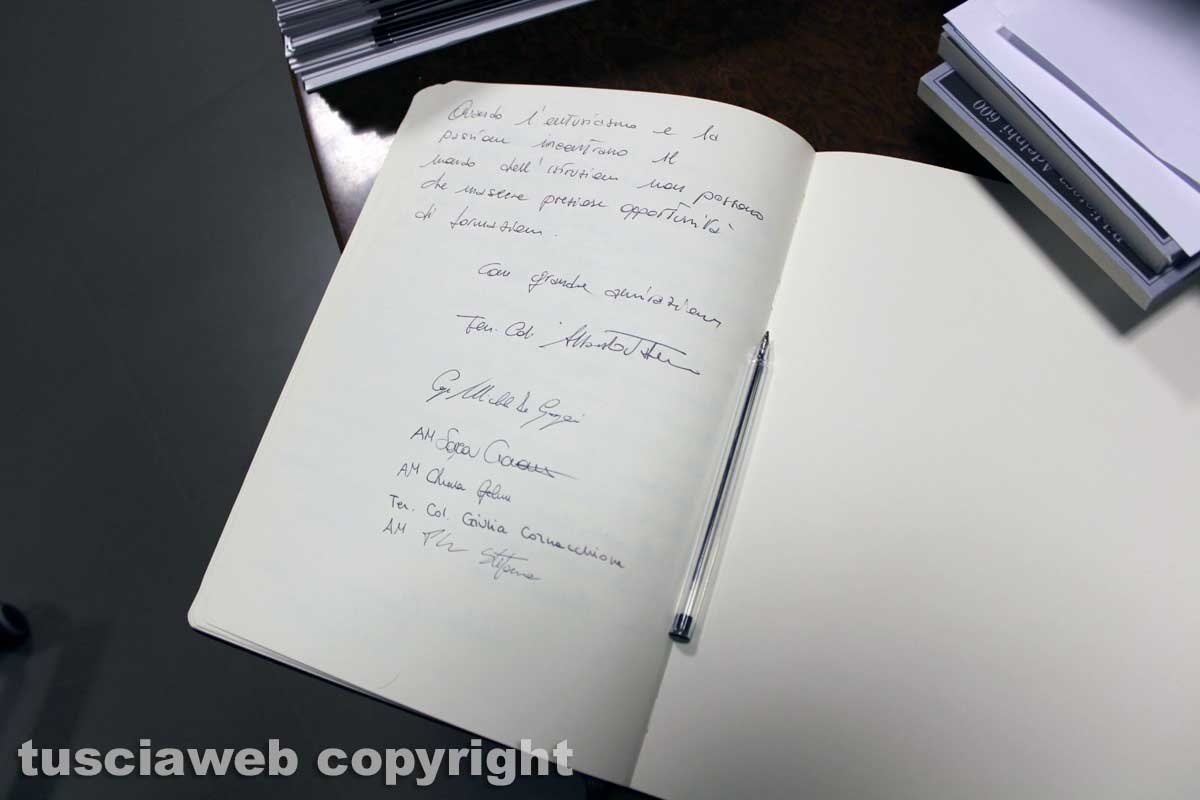 Quando l'entusiasmo e la
passione incontrano il
mondo dell'istruzione non possono
che nascere preziose opportunità
di formazione.
Con grande ammirazione
Ten. Col.
AM Sara
AM Chiara
Ten. Col. Giulia Cornacchione
AM Stefano
Adelphi 600
tusciaweb copyright